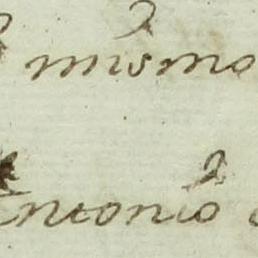 mismo
Antonio